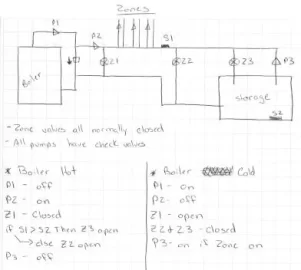 Zones
P1
P2
S1
Z1
Z2
Z3
P3
Boiler
storage
S2
- Zone valves all normally closed
- All pumps have check valves
* Boiler Hot
P1 - off
P2 - on
Z1 - Closed
if S1 > S2 Then Z3 open
else Z2 open
P3 - off
* Boiler Cold
P1 - on
P2 - off
Z1 - open
Z2 & Z3 - closed
P3 - on if Zone on